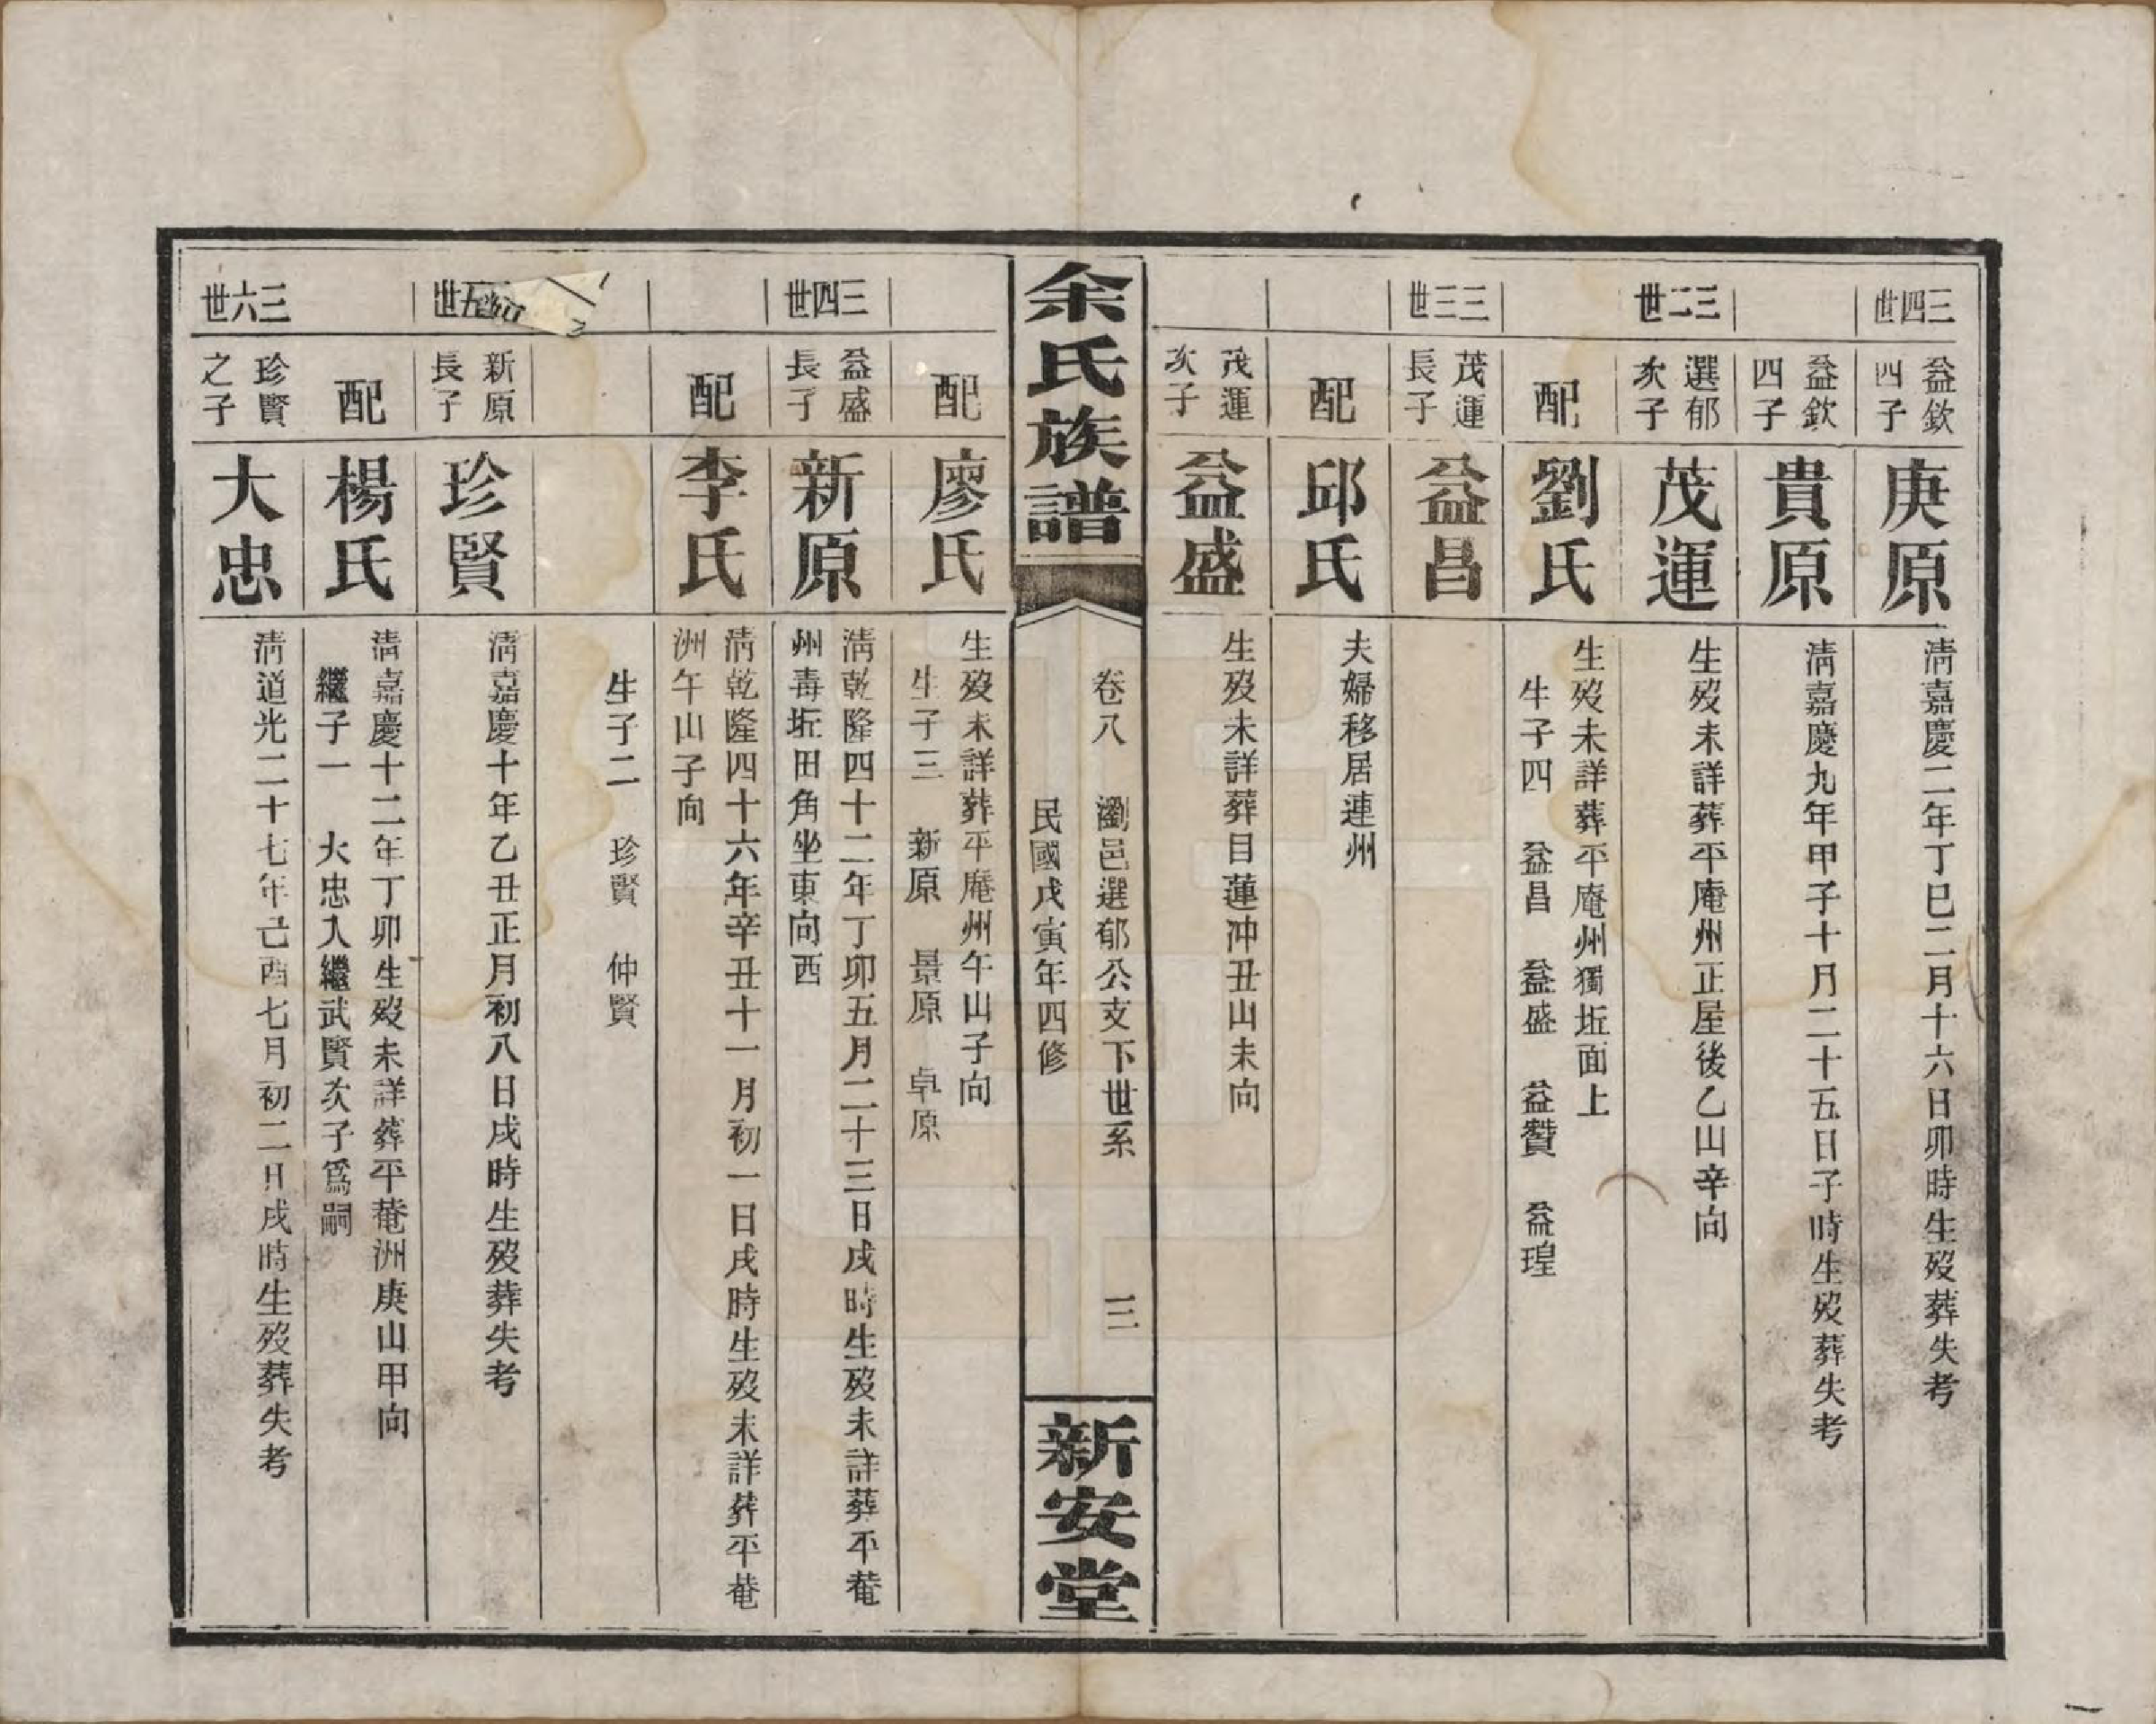 三四世
益欽四子
庚原
淸嘉慶二年丁巳二月十六日卯時生歿葬失考
益欽四子
貴原
淸嘉慶九年甲子十月二十五日子時生歿葬失考
三二世
選郁次子
茂運
生歿未詳葬平庵州正屋後乙山辛向
配
劉氏
生歿未詳葬平庵州獨坵面上
生子四 益昌 益盛 益贊 益瑝
三三世
茂運長子
益昌
配
邱氏
夫婦移居連州
茂運次子
益盛
生歿未詳葬目蓮冲丑山未向
余氏族譜
卷八 瀏邑選郁公支下世系 三
民國戊寅年四修
新安堂
配
廖氏
生歿未詳葬平庵州午山子向
生子三 新原 景原 卓原
三四世
益盛長子
新原
淸乾隆四十二年丁卯五月二十三日戌時生歿未詳葬平菴
州毒坵田角坐東向西
配
李氏
淸乾隆四十六年辛丑十一月初一日戌時生歿未詳葬平菴
洲午山子向
生子二 珍賢 仲賢
五世
新原長子
珍賢
淸嘉慶十年乙丑正月初八日戌時生歿葬失考
配
楊氏
淸嘉慶十二年丁卯生歿未詳葬平菴洲庚山甲向
繼子一 大忠入繼武賢次子爲嗣
三六世
珍賢之子
大忠
淸道光二十七年己酉七月初二日戌時生歿葬失考